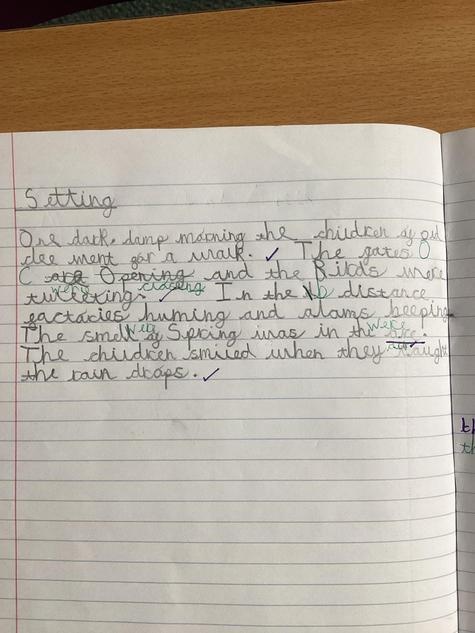 Setting
One dark, damp morning the children of
went for a walk. ✓ The gates O
C are Opening and the Birds were
were closing
tuttering. ✓ In the D distance
factories huming and alams beeping
were were
The smell of Spring was in the air!
air
The children smiled when they caught
the rain drops. ✓
th
th